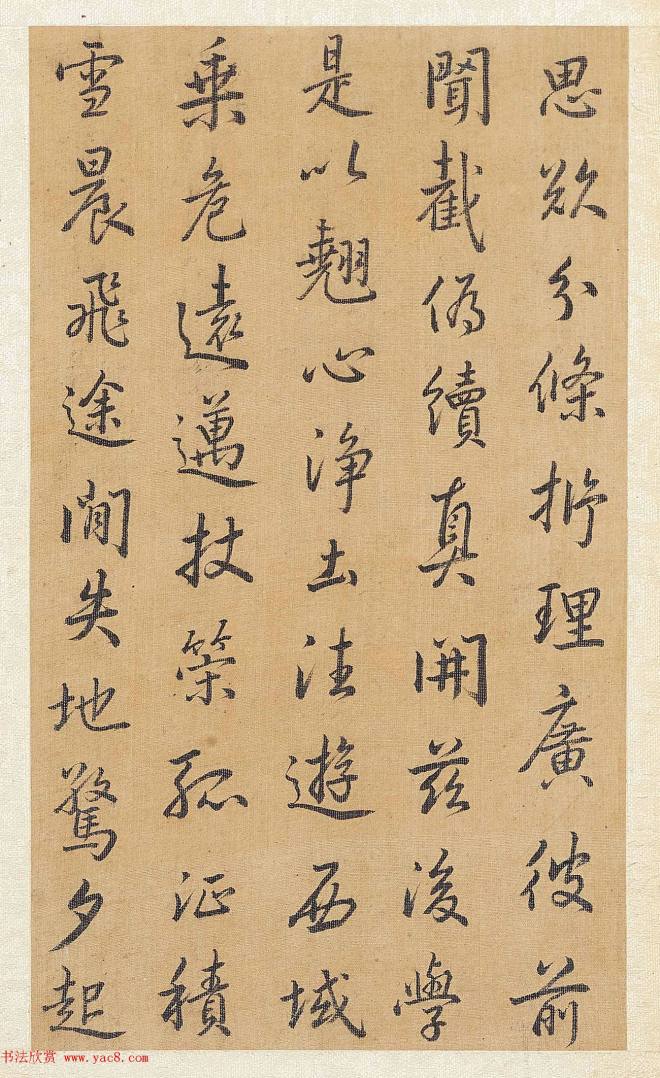 思欲分條析理廣彼前
聞截偽續真開茲後學
是以翹心淨土法遊西域
乗危遠邁杖策孤征積
雪晨飛途間失地驚夕起
书法欣赏 www.yac8.com